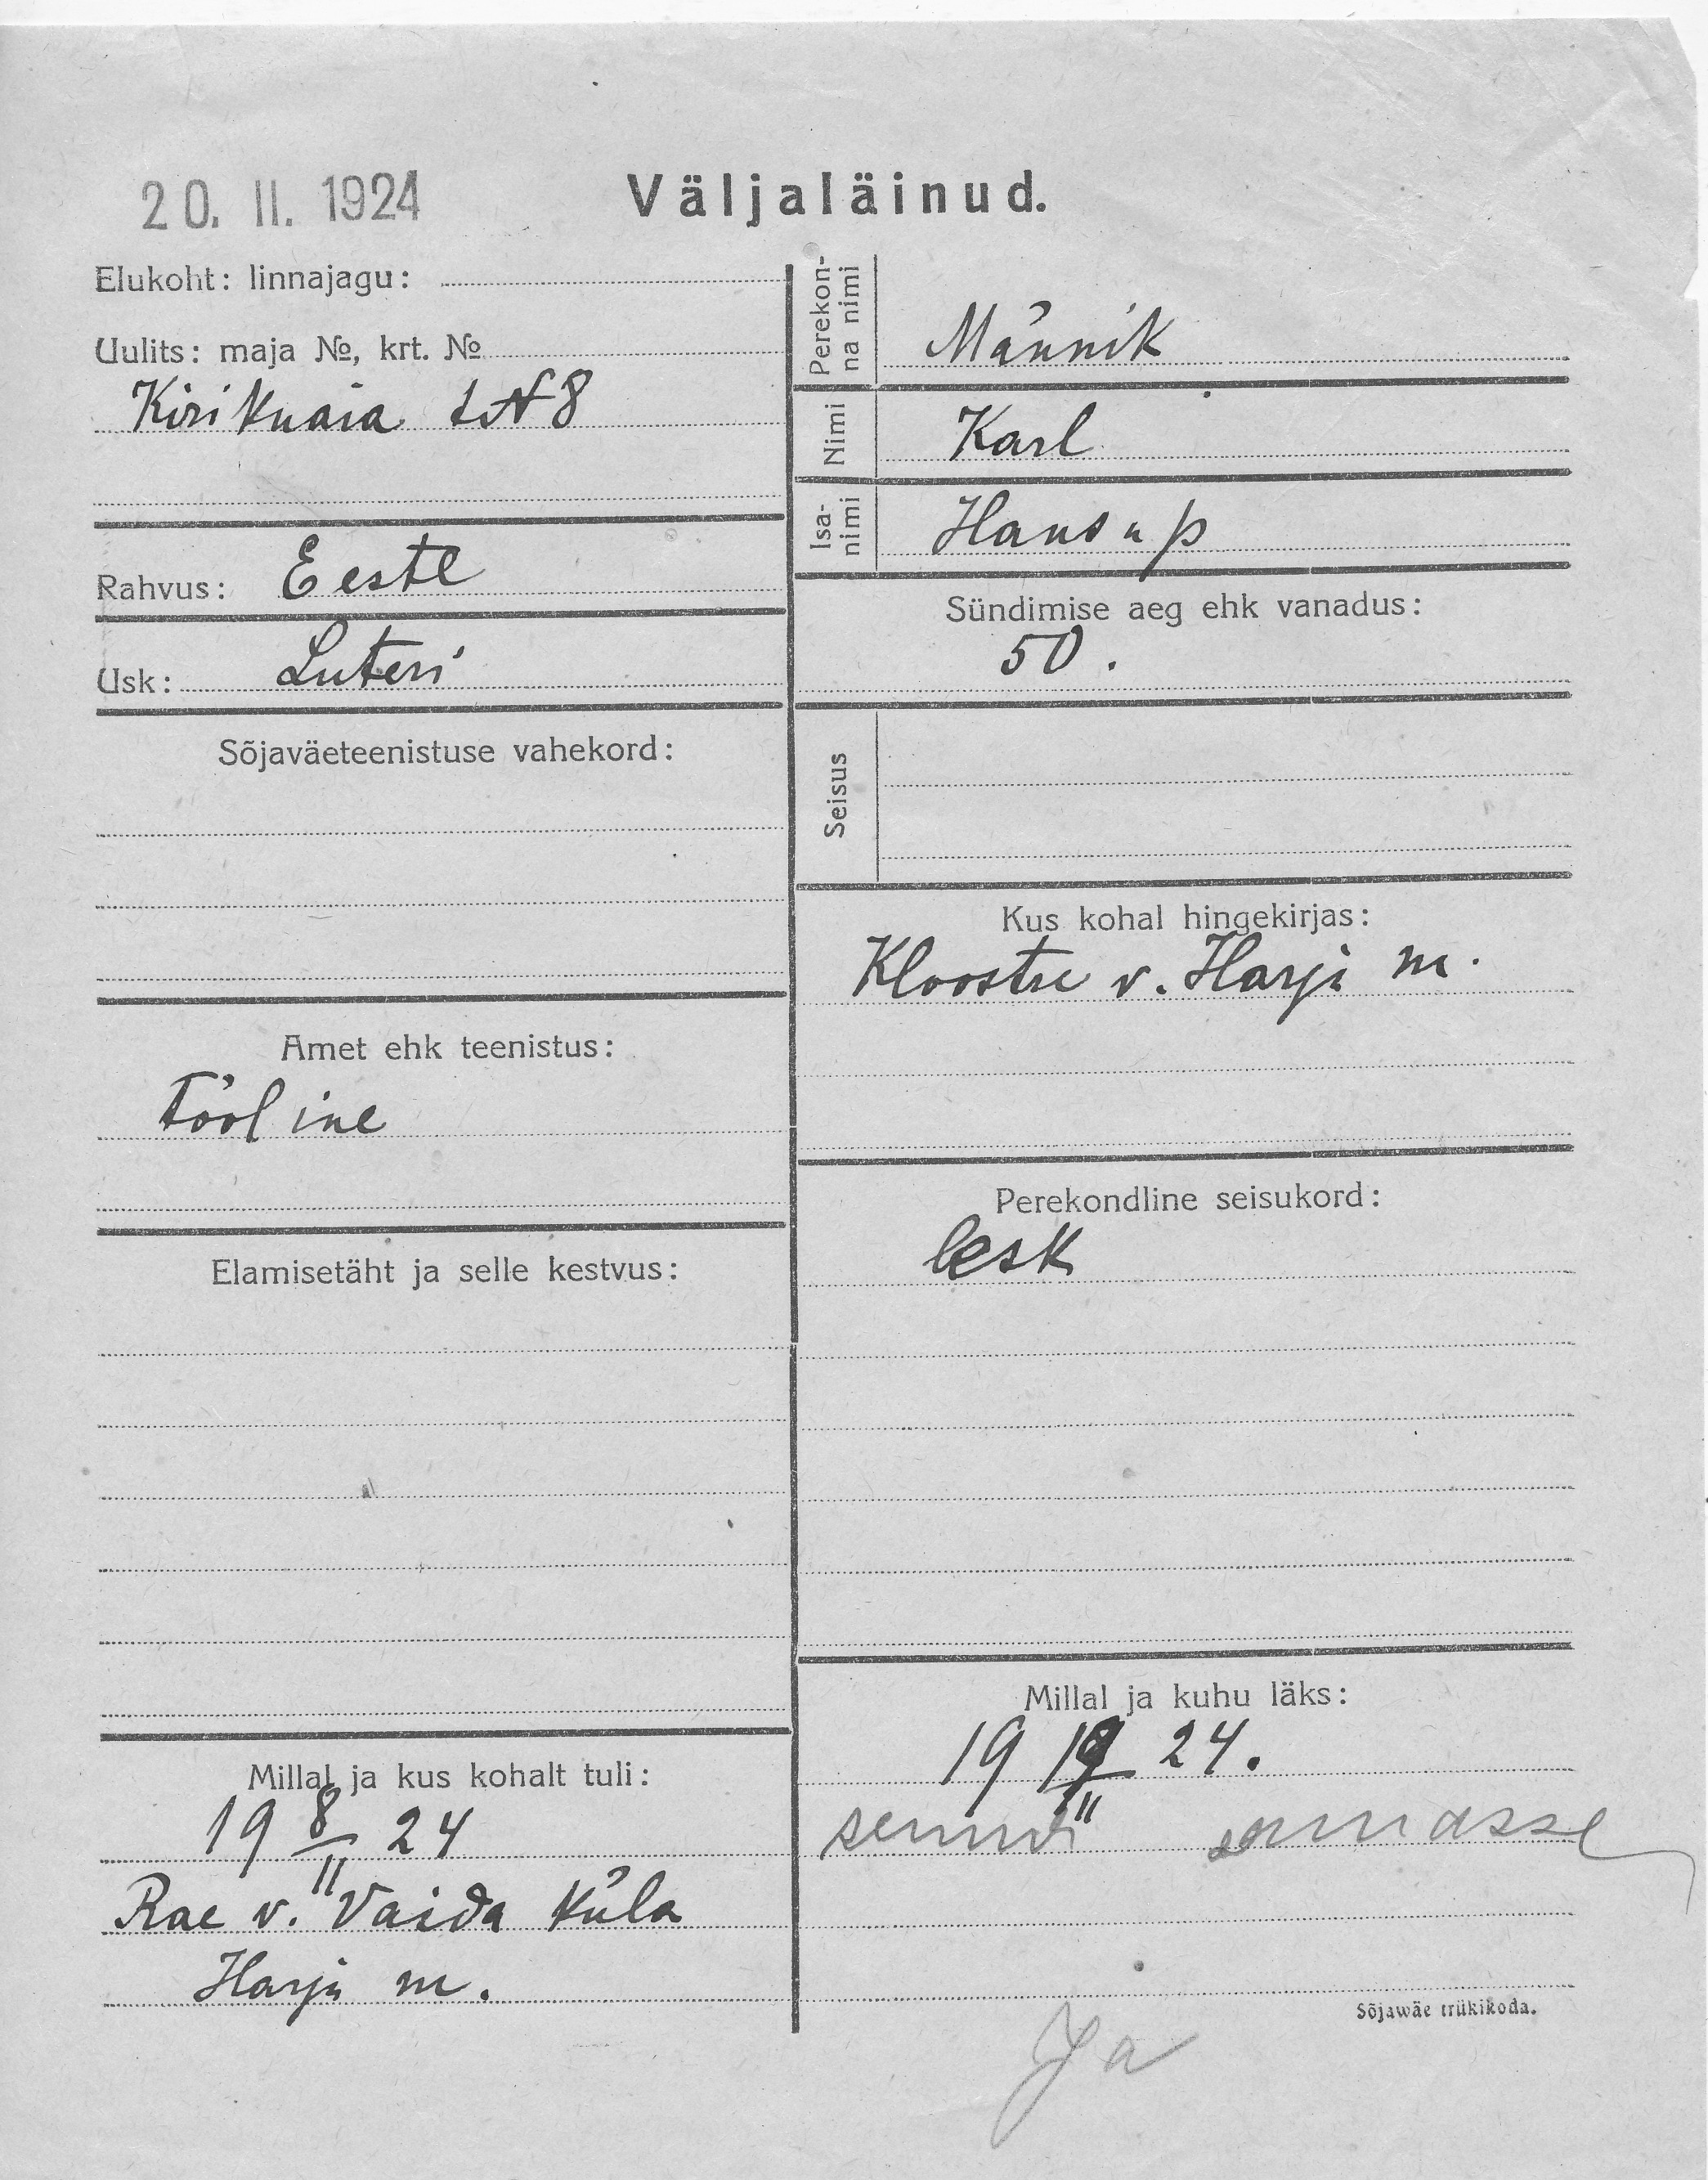 20. II. 1924
Väljaläinud.
Elukoht: linnajagu:
Uulits: maja №, krt. №
Kirikuaia t №8
Rahvus: Eestl
Usk: Luteri
Sõjaväeteenistuse vahekord:
Amet ehk teenistus:
Tööline
Elamisetäht ja selle kestvus:
Millal ja kus kohalt tuli:
19 8/II 24
Rae v. Vaida küla
Harju m.
Perekon-
na nimi
Männik
Nimi
Karl
Isa-
nimi
Hansu p
Sündimise aeg ehk vanadus:
50.
Seisus
Kus kohal hingekirjas:
Kloostre v. Harju m.
Perekondline seisukord:
lesk
Millal ja kuhu läks:
19 19/II 24.
Sõjawäe trükikoda.
Ja